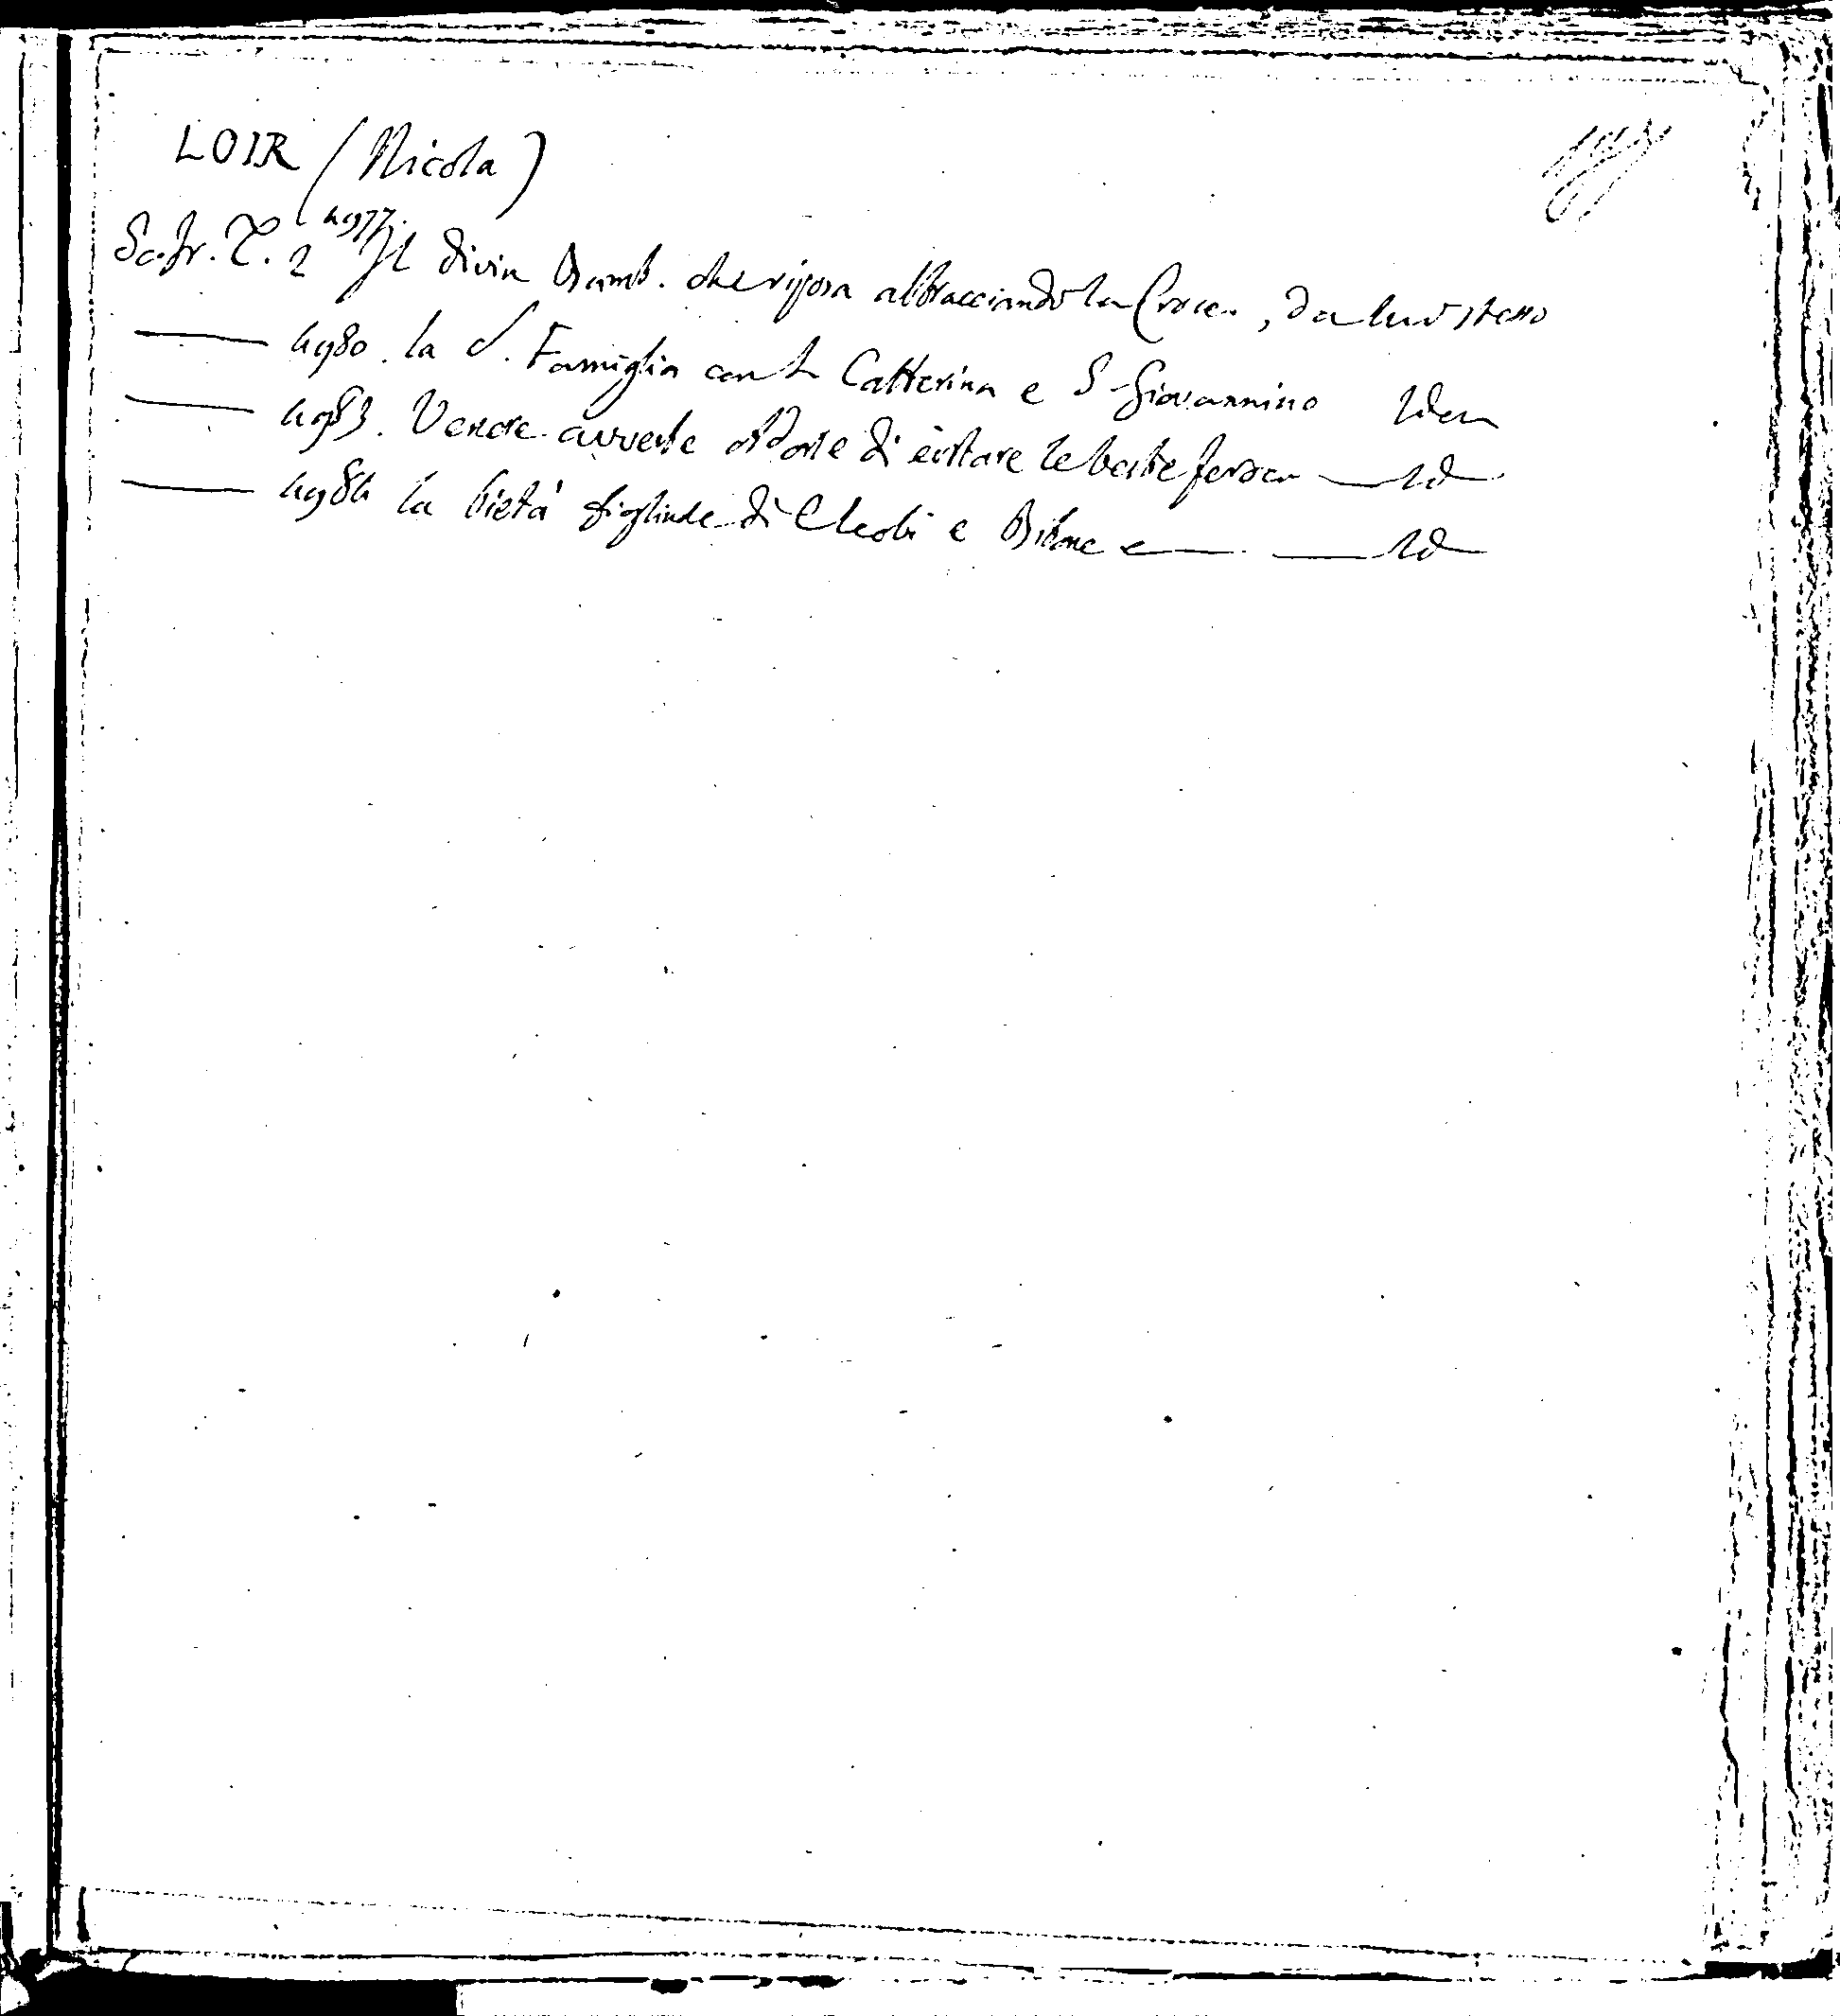 LOIR (Nicola)
Sc. fr. T. 2 4977. Il divin Bamb. che riposa abbracciando la Croce, da lui stesso
4980. la S. Famiglia con S. Catterina e S. Giovannino Idem
4983. Venere avverte Adone di evitare le bestie feroci Id
4984 la Pietà figliale di Cleobi e Bitone Id